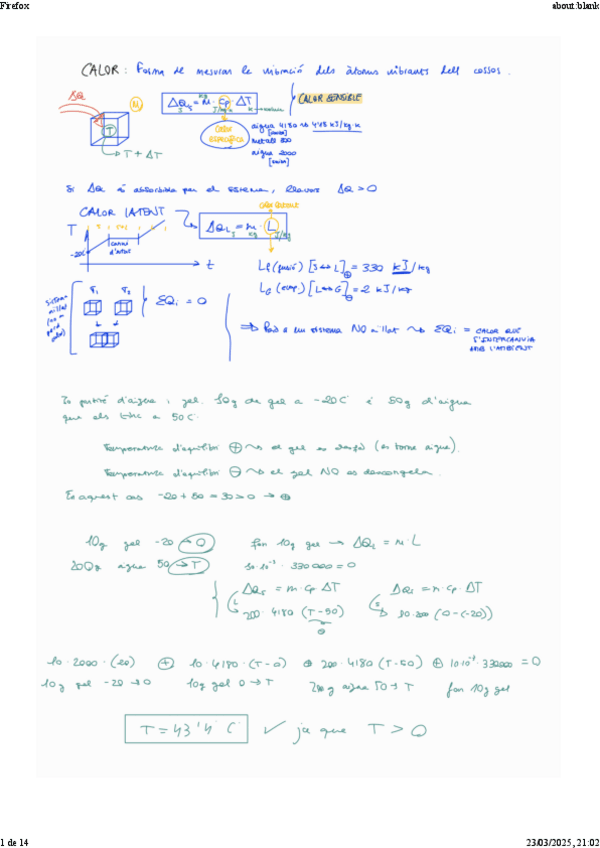 Firefox about:blank
CALOR: Forma de mesurar la vibració dels àtoms vibrants dels cossos.
ΔQ
M
T
T + ΔT
ΔQs = m · cp · ΔT
J kg J/kg·k k
CALOR SENSIBLE
CALOR ESPECÍFICA
aigua 4180 4'18 kJ/kg·k
aigua 2000
Si ΔQ és absorbida pel el sistema, llavors ΔQ > 0
CALOR LATENT
ΔQL = m · L
J kg J/kg
T
-20C
canvi d'estat
t
Lf (fusió) [S↔L] = 330 kJ/kg
[L↔G] = 2 kJ/kg
T1 T2
ΣQi = 0
⇒ Però a un sistema NO aïllat ΣQi = CALOR QUE
S'INTERCANVIA
AMB L'AMBIENT
10g de gel a -20C i 80g d'aigua
que els tinc a 50C.
Temperatura d'equilibri ⊕ el gel es desfà (es torna aigua).
Temperatura d'equilibri ⊖ el gel NO es descongela.
En aquest cas -20 + 50 = 30 > 0 → ⊕
10g gel -20 → 0 fon 10g gel → ΔQL = m · L
200g aigua 50 → T 10·10⁻³ · 330000 = 0
ΔQs = m · cp · ΔT ΔQs = m · cp · ΔT
200 · 4180 (T-50) (0-(-20))
10·2000·(20) ⊕ 10·4180·(T-0) ⊕ 200·4180(T-50) ⊕ 10·10⁻³·330000 = 0
10g gel -20→0 10g gel 0→T 200g aigua 50→T fon 10g gel
T = 43'4 C ✓ ja que T > 0
1 de 14 23/03/2025, 21:02